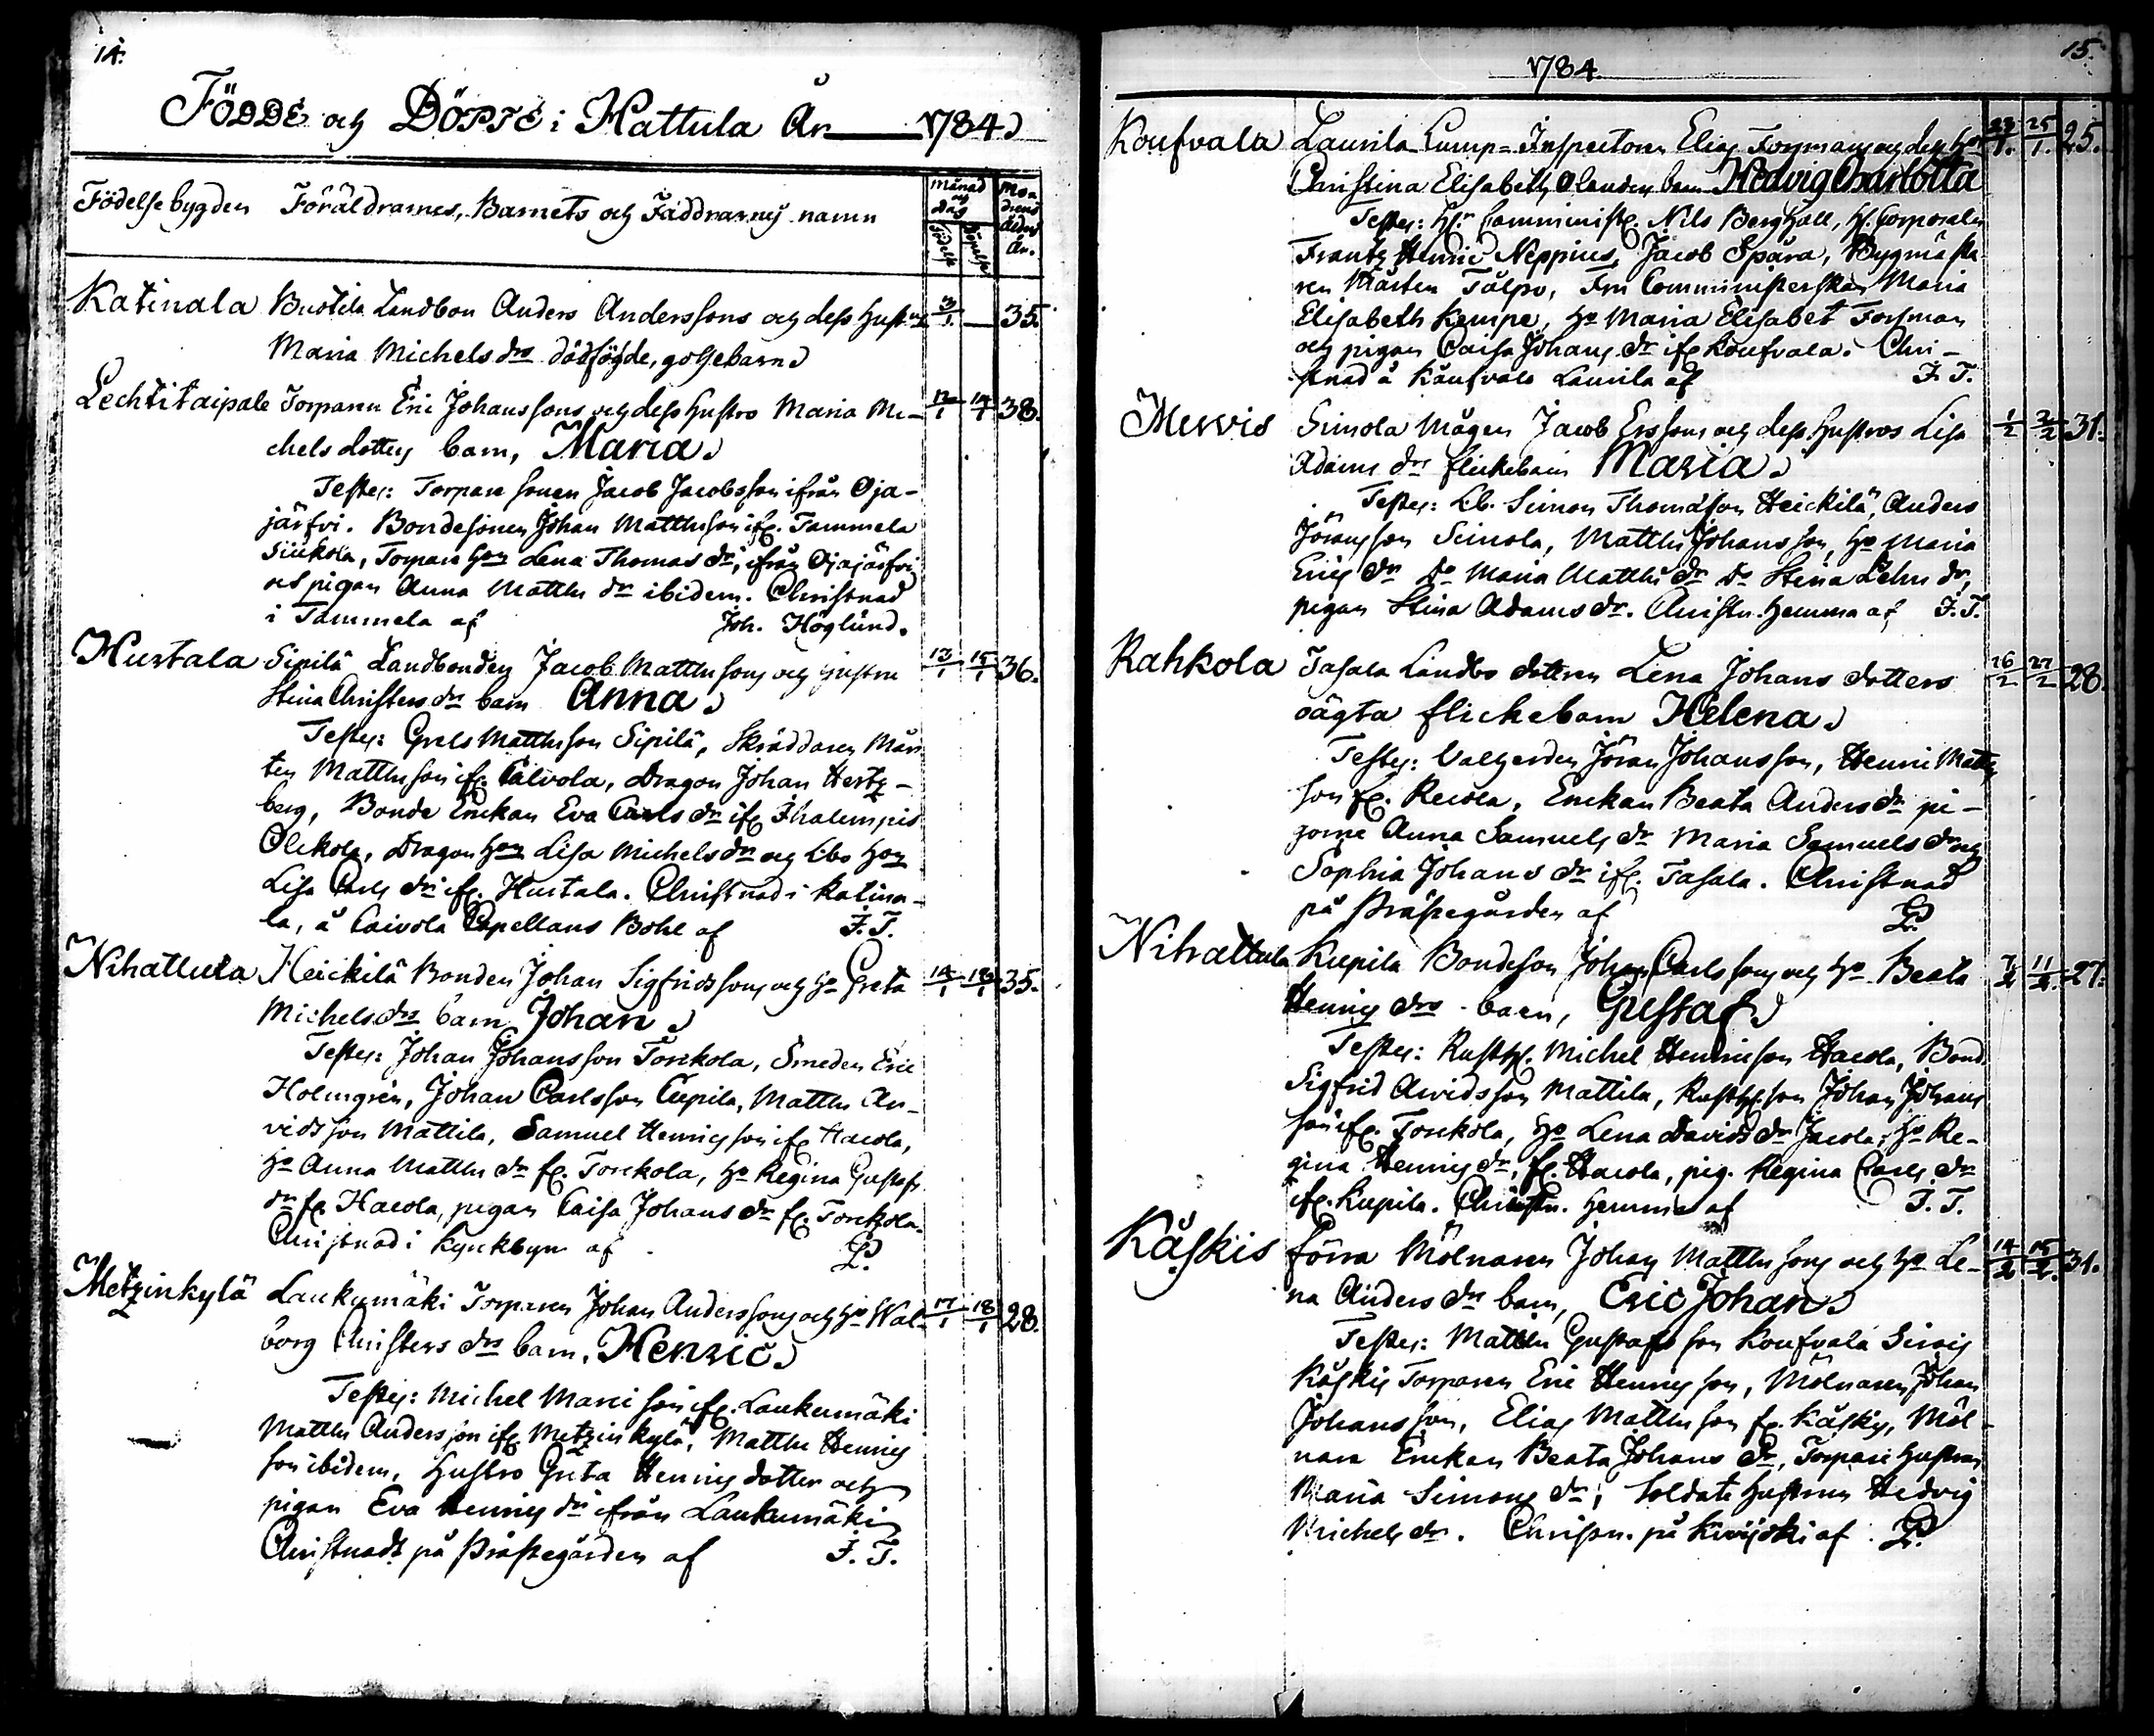 14.
FÖDDE och DÖPTE i Hattula År 1784
Födelse bygden Föräldrarnes, Barnets och Faddrarnes namn månad och dag Födelse Döpelse Modrens ålders År.
Katinala Buotila Landbon Anders Anderssons och dess hustrus 3/1 — 35.
Maria Michels drs dödfögde, gossebarn
Lechtitaipale Torparen Eric Johanssons och dess hustro Maria Mi- 12/1 14/1 38.
chels dotters barn, Maria
Testes: Torpare sonen Jacob Jacobsson ifrån Oja-
järfvi. Bondesonen Johan Matthsson ifr. Tammela
Siukola, Torpare hon Lena Thomas dr, ifrån Ojajärfvi
och pigan Anna Matths dr ibidem. Christnad
i Tammela af Joh. Höglund.
Hurtala Sipilä Landbonden Jacob Matthssons och hustru 13/1 15/1 36.
Stina Christers dr barn Anna
Testes: Grels Matthsson Sipilä, Skräddaren Mår-
ten Matthsson ifr. Calvola, Dragon Johan Hertz-
berg, Bonde Enckan Eva Carls dr ifr Ihalempis
Olekola, Dragon hon Lisa Michels dr och Lbo hon
Lisa Carls dr ifr. Hurtala. Christnad i Katina-
la, å Caivola Capellans Bohl af F. T.
Nihattula Heickilä Bonden Johan Sigfridssons och ho Greta 14/1 18/1 35.
Michels drs barn Johan
Testes: Johan Johansson Torckola, Smeden Eric
Holmgrén, Johan Carlsson Cupila, Matths Ar-
vidsson Mattila, Samuel Henricsson ifr Hacola,
Ho Anna Matths dr fr. Torckola, ho Regina Gustafs
dr fr Hacola, pigan Caisa Johans dr fr. Torckola.
Christnad i Kyrckbyn af L.
Metzinkylä Laukumäki Torparen Johan Anderssons och ho Wal- 17/1 18/1 28.
borg Christers drs barn, Henric
Testes: Michel Marci son ifr. Laukumäki
Matths Andersson ifr Metzinkylä, Matths Henrics
son ibidem, hustro Greta Henrics dotter och
pigan Eva Henrics dr ifrån Laukumäki
Christnadt på Prästegården af F. T.
15.
1784.
Koufvala Laurila Lump-Inspectoren Elias Forsmans och dess hon 23/1. 25/1. 25.
Christina Elisabeth Olanders barn Hedvig Charlotta
Testes: Hr Comminist. Nils Berghäll, H. Corporalen
Frantz Henric Neppius, Jacob Spåra, Bygmästa
ren Mårten Tålpo, Fru Comministerskan Maria
Elisabeth Kempe, ho Maria Elisabet Forsman
och pigan Caisa Johans dr ifr Koufvala. Chri-
stnad å Koufvala Laurila af F. T.
Mervis Simola Mågen Jacob Erssons och dess hustros Lisa 1/2 2/2 31.
Adams drs flickebarn Maria
Testes: Lb. Simon Thomasson Heickilä, Anders
Jöransson Simola, Matths Johansson, ho Maria
Erics dr Do Maria Matths dr Do Stina Lehns dr,
pigan Stina Adams dr. Christn. hemma af F. T.
Rahkola Tasala Landbo dottren Lena Johans dotters 26/2 27/2 28.
oägta flickebarn Helena
Testes: Jöran Johansson, Henric Matts
son fr. Recola, Enckan Beata Anders dr pi-
gorne Anna Samuels dr Maria Samuels dr och
Sophia Johans dr ifr. Tasala. Christnad
på Prästegården af L.
Nihattula Kupila Bondeson Johan Carlssons och ho Beata 7/2 11/2 27.
Henrics drs barn, Gustaf
Testes: Rusth. Michel Henricsson Hacola, Bond.
Sigfrid Arvidsson Mattila, Rusth. son Johan Johans
son ifr. Torckola, ho Lena Davids dr Jacola, ho Re-
gina Henrics dr, fr. Hacola, pig. Regina Carls dr
ifr. Kupila. Christn. hemma af F. T.
Kåskis förra Mölnaren Johan Matthssons och ho Le- 14/2 15/2. 31.
na Anders drs barn, Eric Johan
Testes: Matths Gustafsson Koufvala
Kåskis Torparen Eric Henricsson, Mölnaren Johan
Johansson, Elias Matthsson fr. Kåskis, Möl-
nare Enckan Beata Johans dr, Torpare hustrun
Maria Simons dr, Soldate hustrun Hedvig
Michels dr. Christn. på Kivijoki af L.